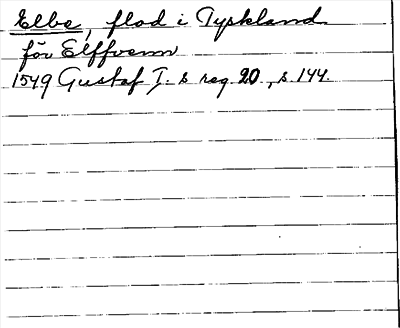 Elbe, flod i Tyskland
för Elffvenn
1549 Gustaf I. s reg. 20., s. 144.